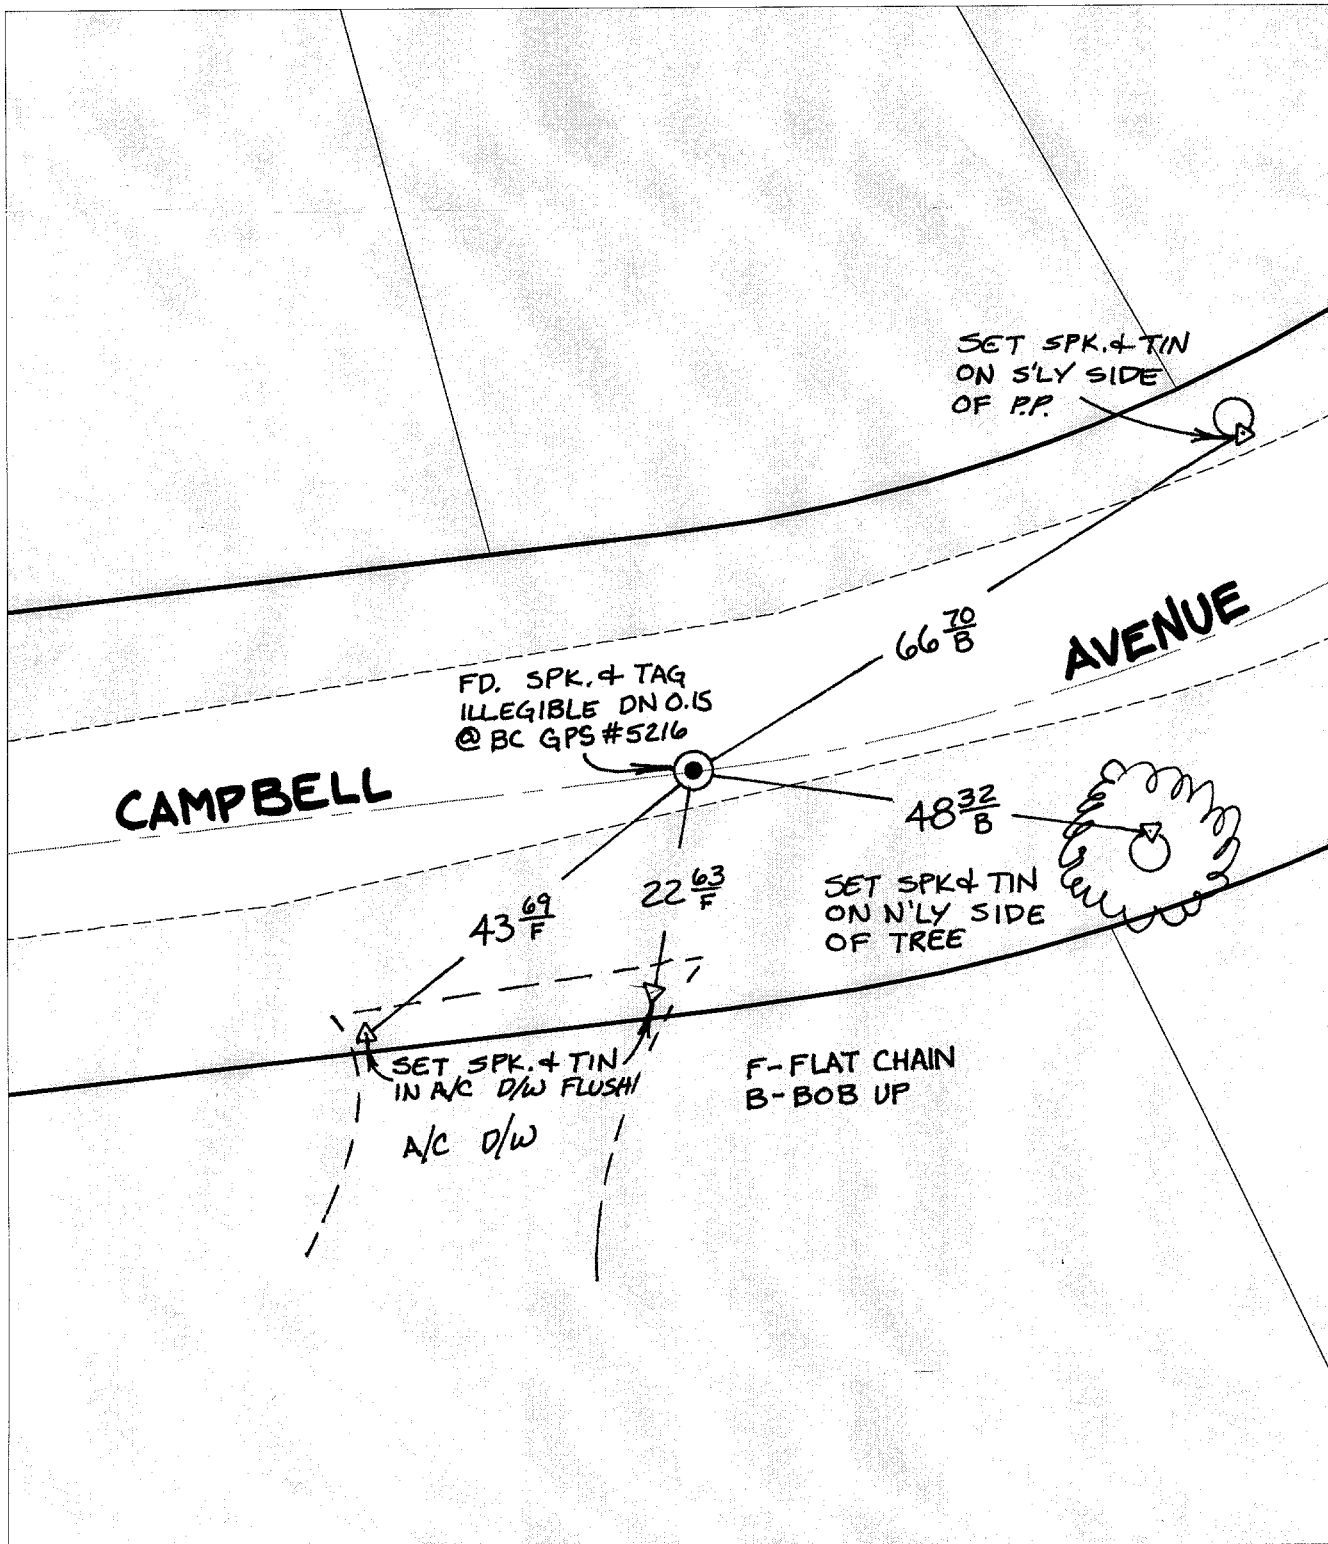 SET SPK. & TIN
ON S'LY SIDE
OF P.P.
66 70/B
AVENUE
FD. SPK. & TAG
ILLEGIBLE DN 0.15
@ BC GPS #5216
CAMPBELL
48 32/B
43 69/F
22 63/F
SET SPK & TIN
ON N'LY SIDE
OF TREE
SET SPK. & TIN
IN A/C D/W FLUSH
A/C D/W
F-FLAT CHAIN
B-BOB UP